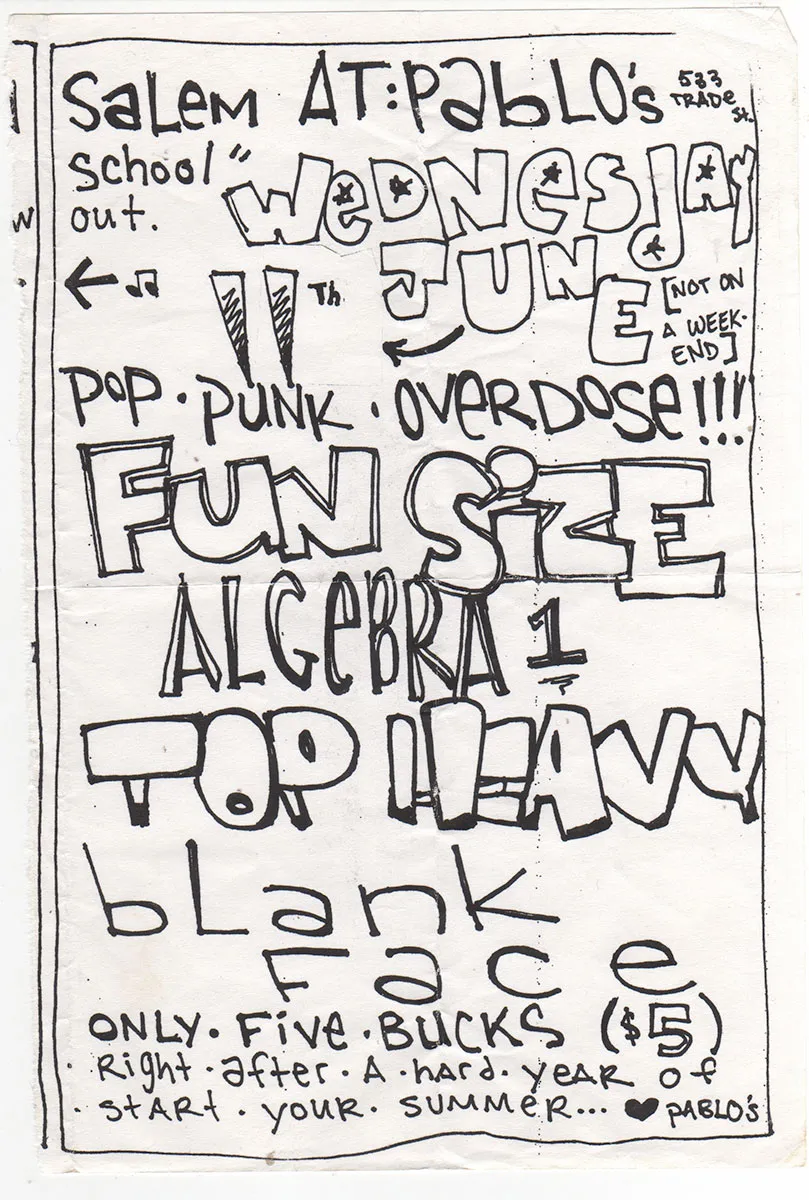 SaLeM AT: PabLO's 533 TRADe St.
School" out.
WeDNesday
← ♫ 11Th JUNE [NOT ON A WEEK-END]
POP · PUNK · OVERDOSE!!!
FUN SiZE
ALGeBRA 1
TOP HEAVY
bLank
Face
ONLY · Five · BUCKS ($5)
· Right · after · A · hard · yEAR of
· StART · your · SUMMeR... ♥ PABLO's
w